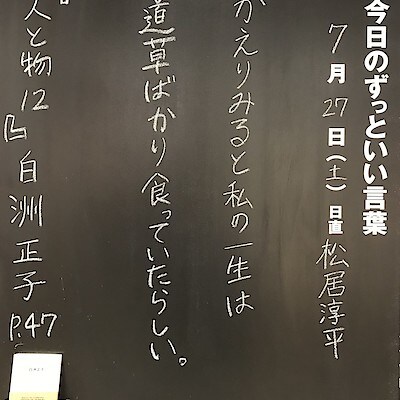 今日のずっといい言葉
7月27日(土)日直 松居淳平
かえりみると私の一生は
道草ばかり食っていたらしい。
人と物12 白洲正子 P.47